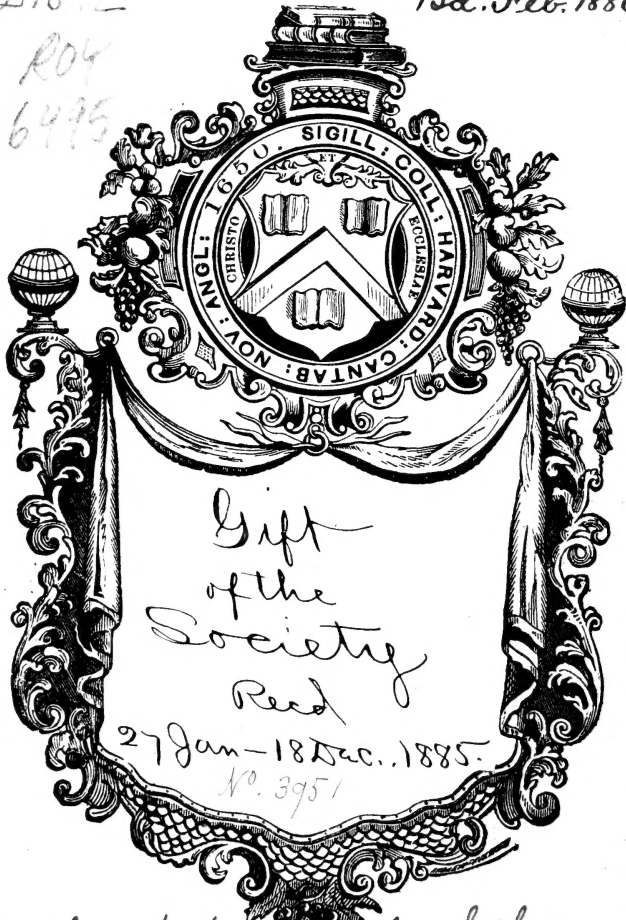 Bd. Feb. 1886
ROY
6495
SIGILL: COLL: HARVARD: CANTAB: NOV: ANGL: 1650.
CHRISTO ET ECCLESIAE
Gift
of the
Society
Recd
27 Jan – 18 Dec., 1885.
No. 3951